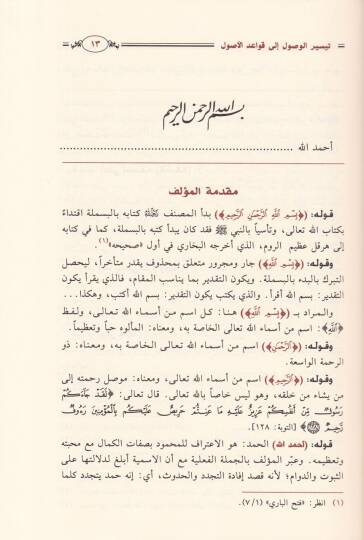 تيسير الوصول إلى قواعد الأصول
١٣
بسم الله الرحمن الرحيم
أحمد الله ............................................................
مقدمة المؤلف
قوله: (﴿بِسْمِ اللَّهِ الرَّحْمَٰنِ الرَّحِيمِ﴾) بدأ المصنف رحمه الله كتابه بالبسملة اقتداءً
بكتاب الله تعالى، وتأسياً بالنبي ﷺ فقد كان يبدأ كتبه بالبسملة، كما في كتابه
إلى هرقل عظيم الروم، الذي أخرجه البخاري في أول «صحيحه»(١).
وقوله: (﴿بِسْمِ اللَّهِ﴾) جار ومجرور متعلق بمحذوف يقدر متأخراً، ليحصل
التبرك بالبدء بالبسملة. ويكون التقدير بما يناسب المقام، فالذي يقرأ يكون
التقدير: بسم الله أقرأ. والذي يكتب يكون التقدير: بسم الله أكتب، وهكذا...
والمراد بـ (﴿بِسْمِ اللَّهِ﴾) هنا: كل اسم من أسماء الله تعالى، ولفظ
(﴿اللَّهِ﴾): اسم من أسماء الله تعالى الخاصة به، ومعناه: المألوه حباً وتعظيماً.
وقوله: (﴿الرَّحْمَٰنِ﴾) اسم من أسماء الله تعالى الخاصة به، ومعناه: ذو
الرحمة الواسعة.
وقوله: (﴿الرَّحِيمِ﴾) اسم من أسماء الله تعالى، ومعناه: موصل رحمته إلى
من يشاء من خلقه، وهو ليس خاصاً بالله تعالى. قال تعالى: ﴿لَقَدْ جَاءَكُمْ
رَسُولٌ مِنْ أَنْفُسِكُمْ عَزِيزٌ عَلَيْهِ مَا عَنِتُّمْ حَرِيصٌ عَلَيْكُمْ بِالْمُؤْمِنِينَ رَءُوفٌ
رَحِيمٌ ﴿١٢٨﴾﴾ [التوبة: ١٢٨].
قوله: (أحمد الله) الحمد: هو الاعتراف للمحمود بصفات الكمال مع محبته
وتعظيمه. وعبّر المؤلف بالجملة الفعلية مع أن الاسمية أبلغ لدلالتها على
الثبوت والدوام؛ لأنه قصد إفادة التجدد والحدوث، أي: إنه حمد يتجدد كلما
(١) انظر: «فتح الباري» (٧/١).